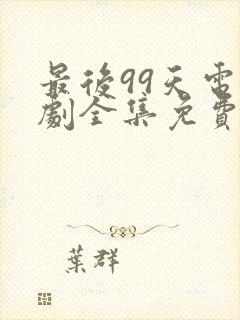 最後99天電
劇全集免費
葉群